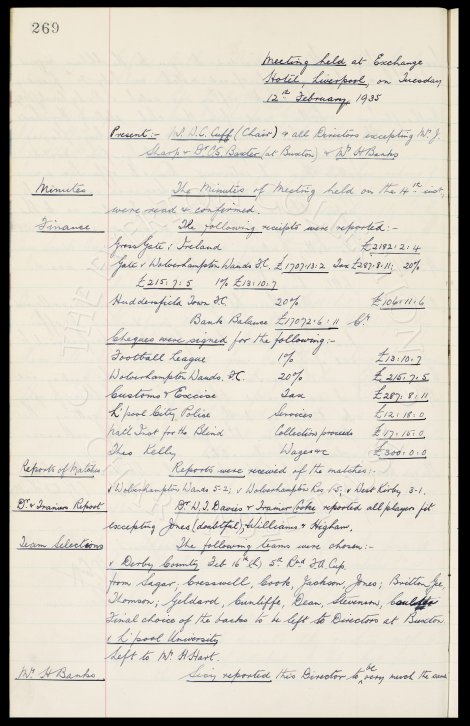 269
Meeting held at Exchange
Hotel, Liverpool, on Tuesday
12th February, 1935
Present:- Mr. W.C. Cuff (Chair) & all Directors excepting Mr. J.
Sharp & Dr C.S. Baxter (at Buxton) & Mr H Banks
Minutes The Minutes of Meeting held on the 4th inst,
were read & confirmed.
Finance The following receipts were reported:-
Gross Gate; Ireland £2182:2:4
Gate, v Wolverhampton Wands F.C. £1707:13:2 Tax £287:8:11; 20%
£215:7:5 1% £13:10:7
Huddersfield Town F.C. 20% £106:11:6
Bank Balance £17072:6:11 Cr
Cheques were signed for the following:-
Football League 1% £13:10:7
Wolverhampton Wands. F.C. 20% £215:7:5
Customs & Excise Tax £287:8:11
L'pool City Police Services £12:18:0
Natl Inst for the Blind Collection proceeds £17:15:0
Theo Kelly Wages &c £300:0:0
Reports of Matches Reports were received of the matches:-
v Wolverhampton Wands 5-2; v Wolverhampton Res 1-5; v West Kirby 3-1.
Dr. & Trainers Report Dr. W.J. Davies & Trainer Cooke reported all players fit
excepting Jones (doubtful), Williams & Higham.
Team Selections The following teams were chosen:-
v Derby County Feb 16th (h) 5th Rnd F.A Cup
from Sagar. Cresswell, Cook, Jackson, Jones; Britton, Gee
Thomson; Geldard, Cunliffe, Dean, Stevenson, Coulter
Final choice of the backs to be left to Directors at Buxton
v L'pool University
Left to Mr H Hart.
Mr H Banks Secy reported this Director to be very much the same